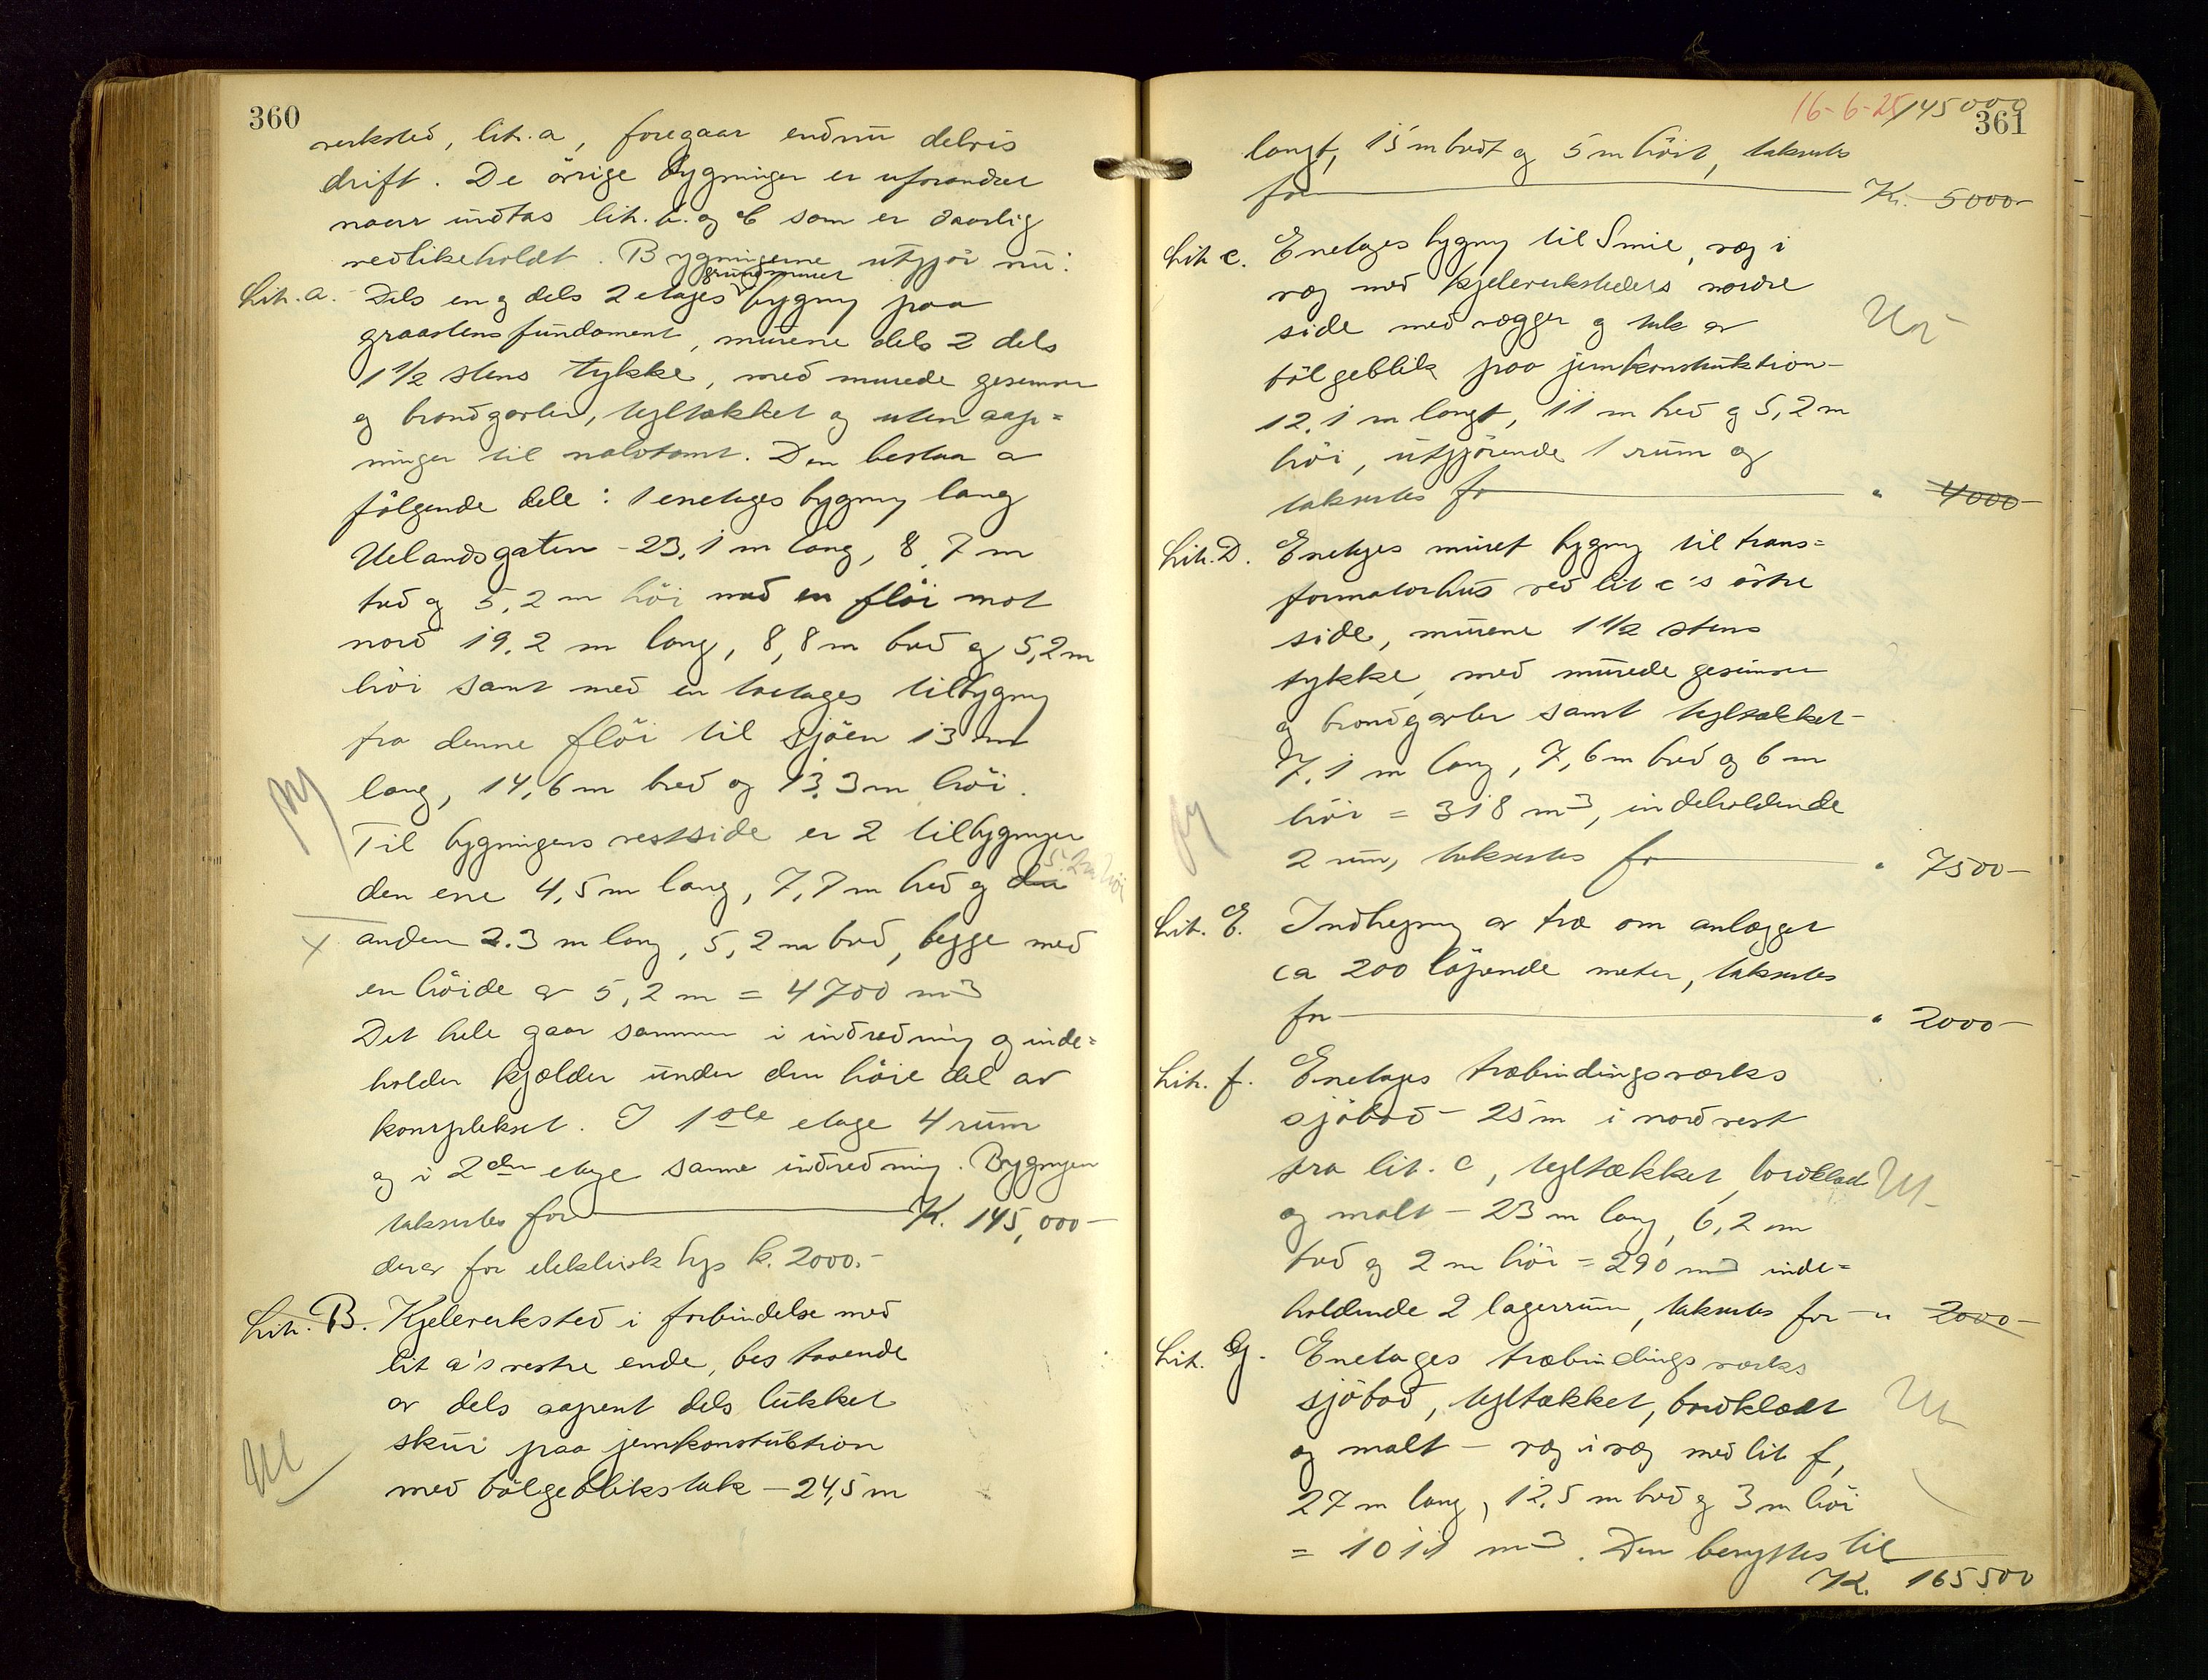 360
verksted, lit. a, foregaar endnu delvis
drift. De övrige bygninger er uforandret
naar undtas lit. b. og C som er daarlig
vedlikeholdt. Bygningerne utgjör nu:
grundmuret
Lit. a. Dels en og dels 2 etages bygning paa
graastens fundament, murene dels 2 dels
1 1/2 stens tykke, med murede gesimser
og brandgavler, tegltækket og uten aap=
ninger til nabotomt. Den bestaar av
fölgende dele: 1 enetages bygning lang
Uelandsgaten - 23,1 m lang, 8,7 m
bred og 5,2 m höi med en flöi mot
nord 19,2 m lang, 8,8 m bred og 5,2 m
höi samt med en toetages tilbygning
fra denne flöi til sjöen 13 m
lang, 14,6 m bred og 13,3 m höi.
Til bygningens vestside er 2 tilbygninger
5.2m höi
den ene 4,5 m lang, 7,7 m bred og den
anden 2.3 m lang, 5,2 m bred, begge med
en höide av 5,2 m = 4700 m3
Det hele gaar sammen i indredning og inde=
holder kjælder under den höie del av
komplekset. I 1ste etage 4 rum
og i 2den etage samme indredning. Bygningen
takseres for K. 145,000-
derav for elektrisk lys k. 2000.-
Lit. B. Kjeleverksted i forbindelse med
lit a's vestre ende, bestaaende
av dels aapent dels lukket
skur paa jernkonstuktion
med bölgeblikstak - 24,5 m
16-6-25 145000
361
langt, 15 m bredt og 5 m höit, takseres
for Kr. 5000-
Lit c. Enetages bygning til Smie, væg i
væg med kjeleverkstedets nordre
side med vægger og tak av
bölgeblik paa jernkonstruktion-
12,1 m langt, 11 m bred og 5,2 m
höi, utgjörende 1 rum og
takseres for " 4000-
Lit. D. Enetages muret bygning til trans=
formatorhus ved lit c's östre
side, murene 1 1/2 stens
tykke, med murede gesimser
og brandgavler samt tegltækket-
7,1 m lang, 7,6 m bred og 6 m
höi = 318 m3, indeholdende
2 rum, takseres for " 7500-
Lit. E. Indhegning av træ om anlægget
ca 200 löpende meter, takseres
for " 2000-
Lit. f. Enetages træbindingsværks
sjöbod - 25 m i nordvest
fra lit. C, tegltækket, bordklæd
og malt - 23 m lang, 6,2 m
bred og 2 m höi = 290 m3 inde=
holdende 2 lagerrum, takseres for - " 2000-
Lit. G. Enetages træbindingsværks
sjöbod, tegltækket, bordklædt
og malt - væg i væg med lit f,
27 m lang, 12,5 m bred og 3 m höi
= 1011 m3. Den benyttes til
K. 165500